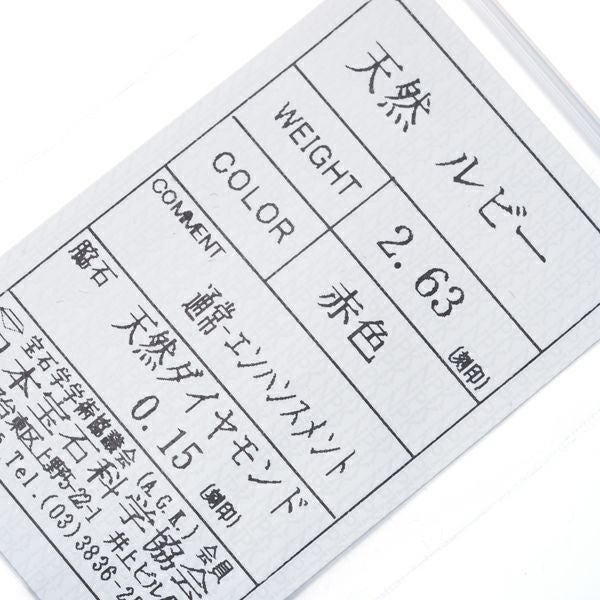 天然 ルビー
WEIGHT 2.63 (刻印)
COLOR 赤色
COMMENT 通常-エンハンスメント
脇石 天然ダイヤモンド
0.15 (刻印)
宝石学学術協議会(A.G.K.)会員
日本宝石科学協会
台東区上野5-22-1 井上ビル
Tel.(03)3836-2